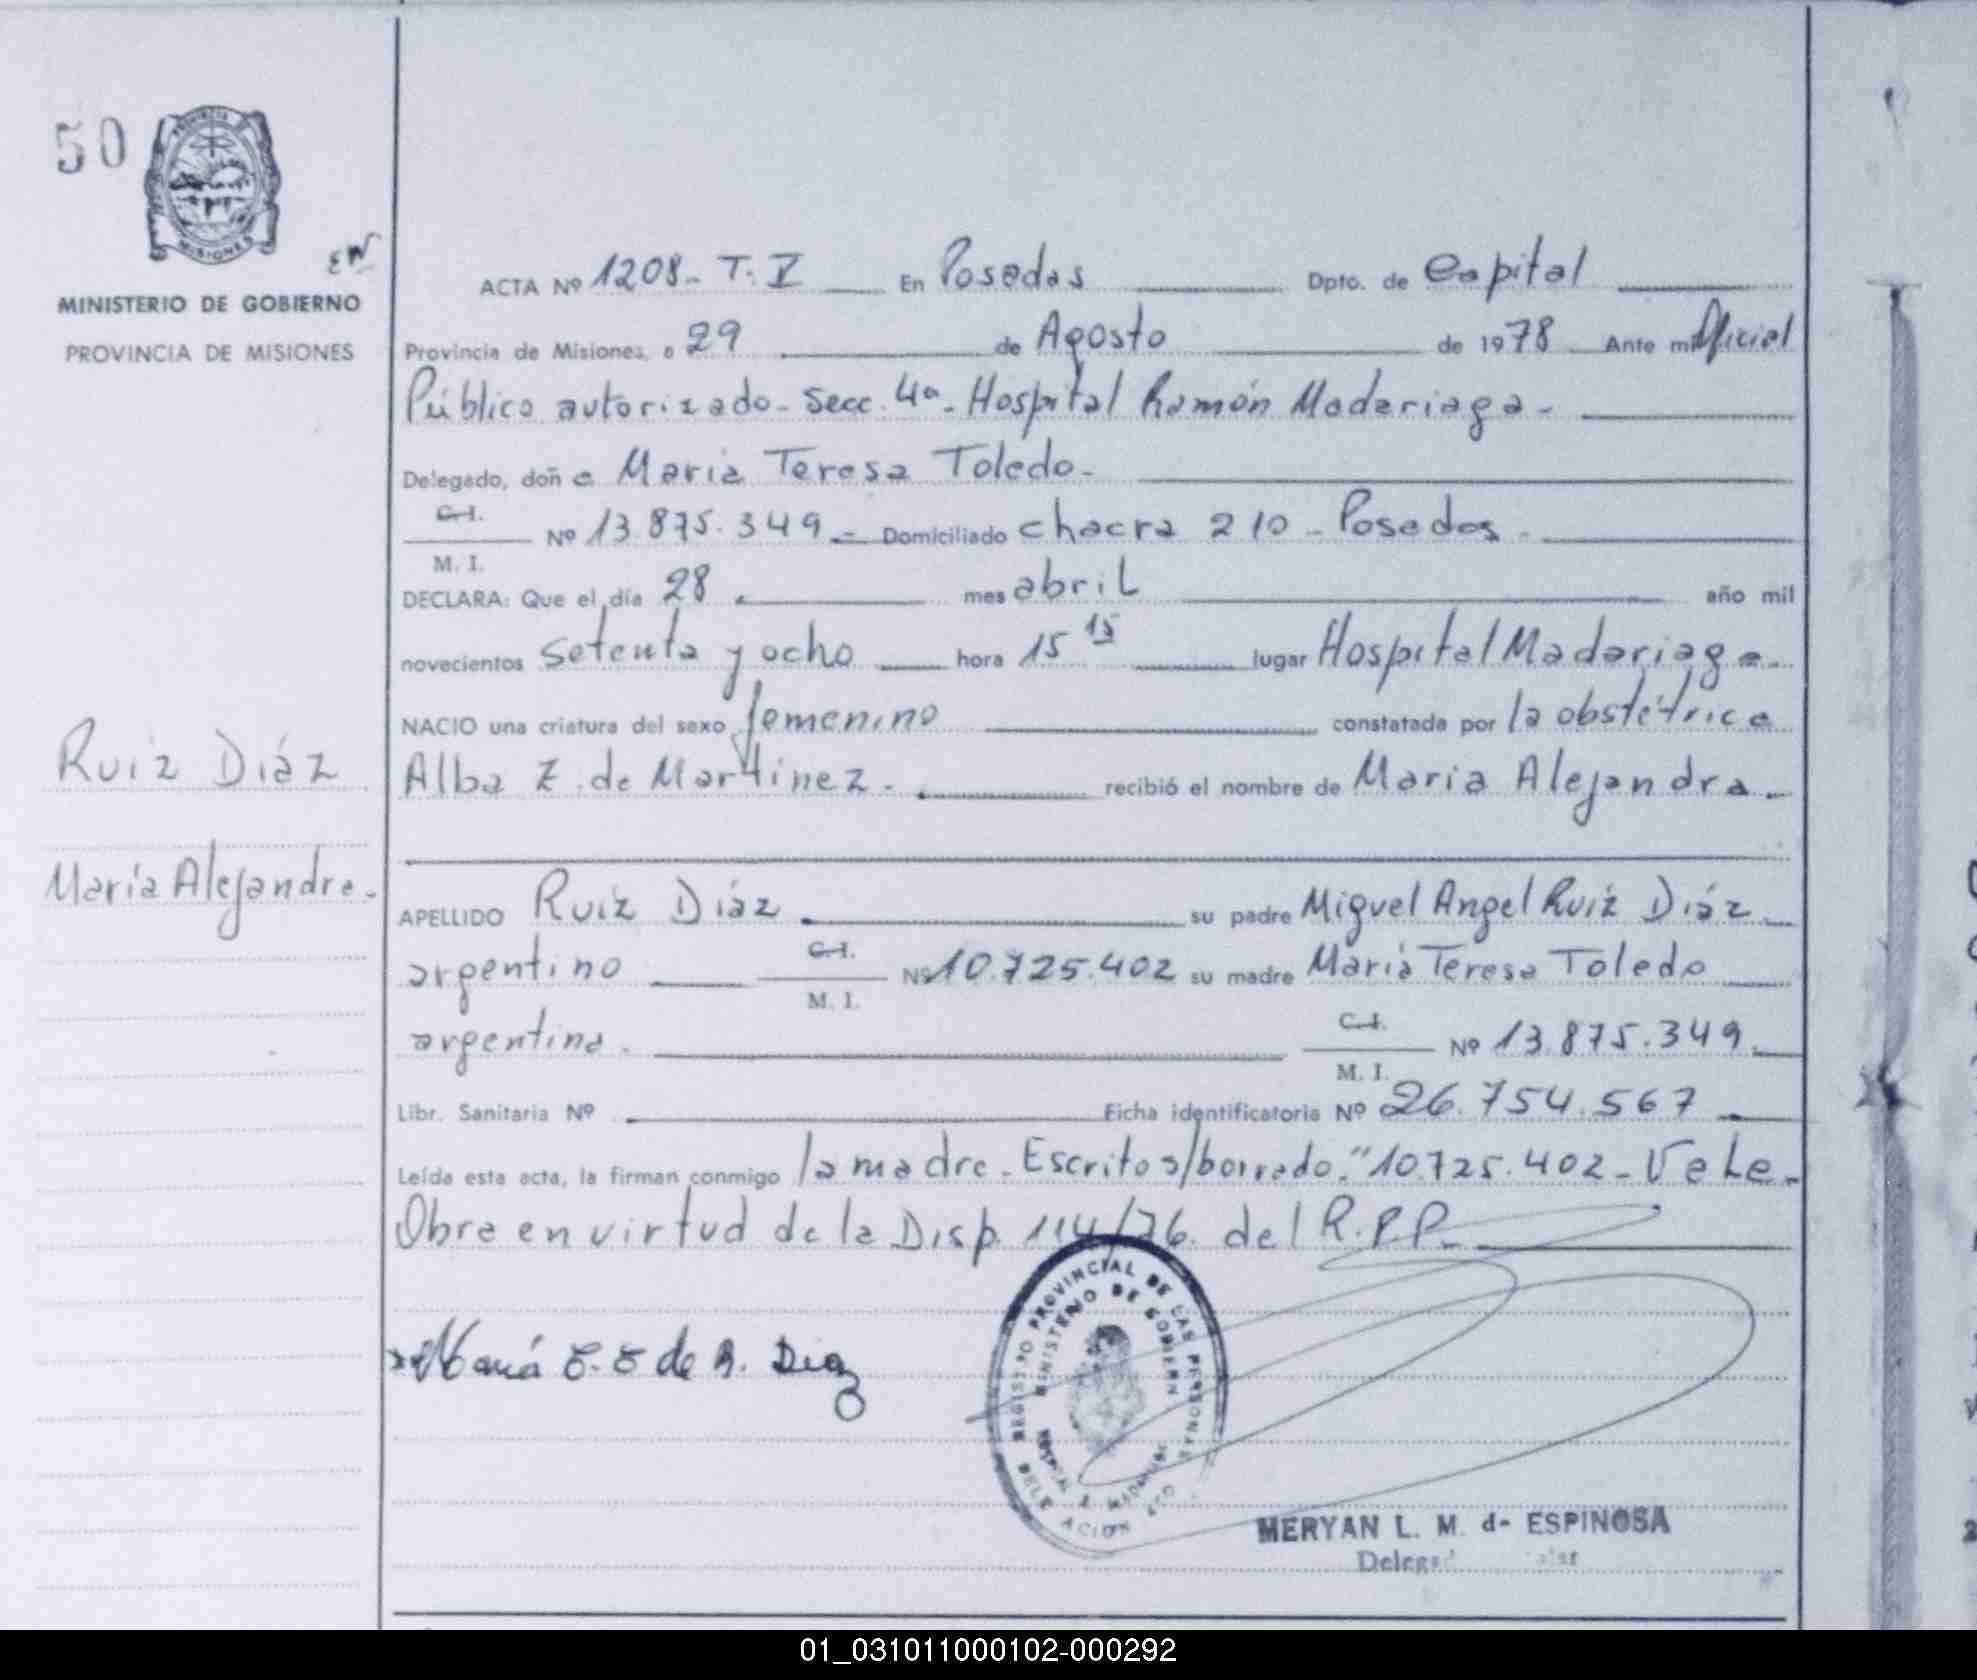 50
PROVINCIA DE
MISIONES
EN
MINISTERIO DE GOBIERNO
PROVINCIA DE MISIONES
Ruiz Diáz
María Alejandra.-
ACTA Nº 1208- T. V En Posadas Dpto. de Capital
Provincia de Misiones, a 29 de Agosto de 1978 Ante mi Oficial
Público autorizado- Secc. 4ª- Hospital Ramón Madariaga-
Delegado, doña Maria Teresa Toledo-
C.I.
M. I.
Nº 13.875.349.- Domiciliado chacra 210 - Posadas-
DECLARA: Que el día 28. mes abril año mil
novecientos setenta y ocho hora 15 15 lugar Hospital Madariaga-
NACIO una criatura del sexo femenino constatada por la obstétrica
Alba Z. de Martinez. recibió el nombre de Maria Alejandra-
APELLIDO Ruiz Diaz su padre Miguel Angel Ruiz Diáz
argentino C.I. M. I. Nº 10.725.402 su madre Maria Teresa Toledo
argentina. C.I. M. I. Nº 13.875.349.
Libr. Sanitaria Nº Ficha identificatoria Nº 26.754.567
Leída esta acta, la firman conmigo la madre- Escrito s/borrado: "10.725.402- Vale-
Obra en virtud de la Disp. 114/76. del R.P.P.-
María T. T de R. Diaz
REGISTRO PROVINCIAL DE LAS PERSONAS
MINISTERIO DE GOBIERNO
MERYAN L. M. de ESPINOSA
01_031011000102-000292